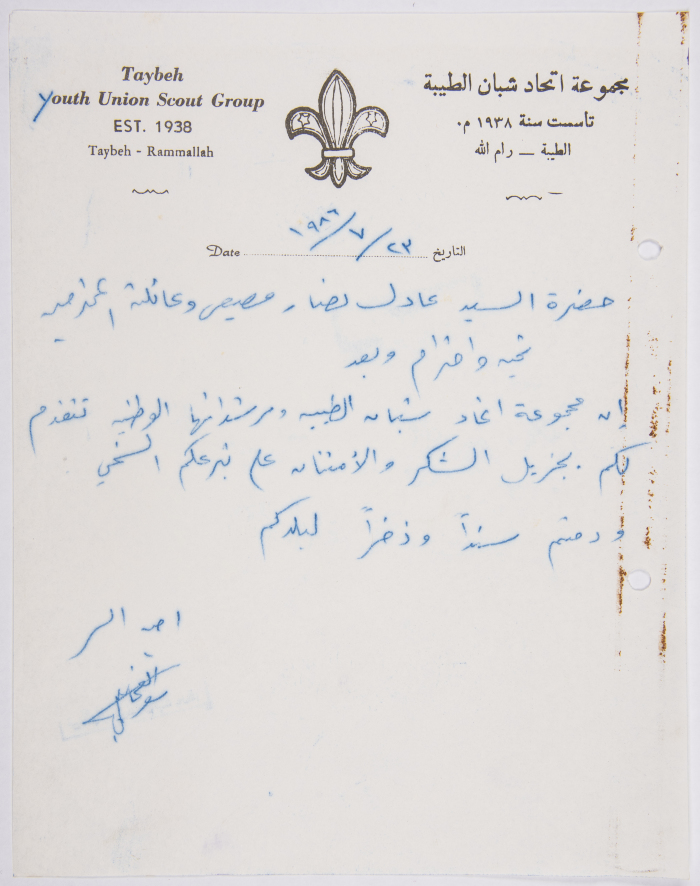 Taybeh
Youth Union Scout Group
EST. 1938
Taybeh - Rammallah
مجموعة اتحاد شبان الطيبة
تأسست سنة ١٩٣٨ م.
الطيبة — رام الله
Date ٢٣/٧/١٩٨٦ التاريخ
حضرة السيد عادل نصار وعائلته
تحيه واحترام وبعد
إن مجموعة اتحاد شبان الطيبه ومرشداتها الوطنيه تتقدم
لكم بجزيل الشكر والأمتنان على تبرعكم السخي
ودمتم سنداً وذخراً لبلدكم
امين السر